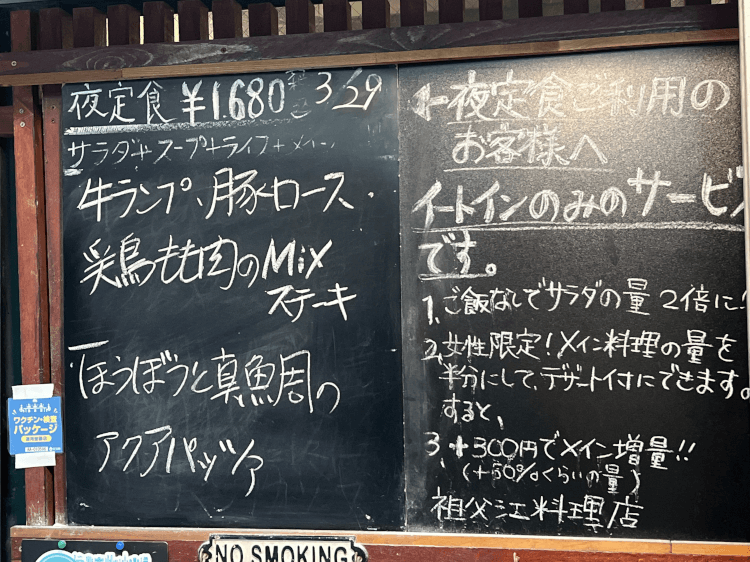 夜定食 ¥1,680 税込 3/29
サラダ+スープ+ライス+メイン
牛ランプ、豚ロース、
鶏もも肉のMix
ステーキ
ほうぼうと真鯛の
アクアパッツァ
←夜定食ご利用の
お客様へ
イートインのみのサービス
です。
1、ご飯なしでサラダの量2倍に!
2、女性限定!メイン料理の量を
半分にして、デザート付にできます。
すると、
3、+300円でメイン増量!!
(+50%くらいの量)
祖父江料理店
ワクチン・検査
パッケージ
NO SMOKING